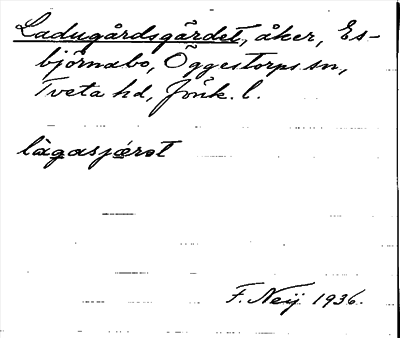 Ladugårdsgärdet, åker, Es-
björnabo, Öggestorps sn,
Tveta hd, Jönk. l.
làgasjœrət
F. Neij 1936.